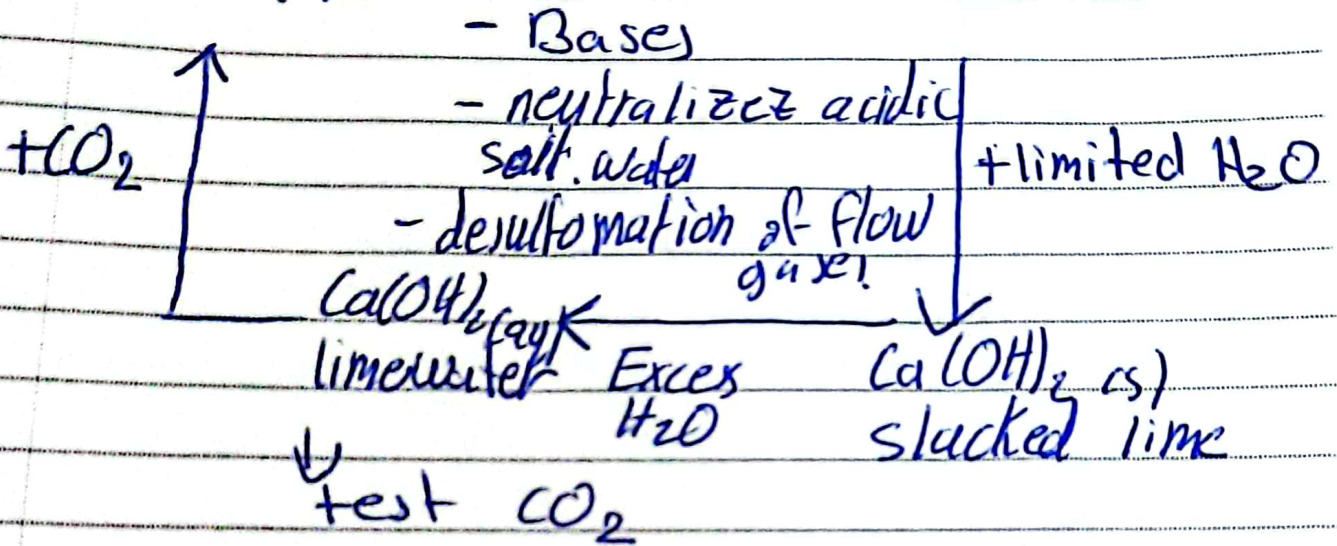 - Bases
- neutralizez acidic
+CO₂
salt. water
+limited H₂O
- desulfomation of flow
gases
Ca(OH)₂(aq)
limewater
Exces
H₂O
Ca(OH)₂ (s)
slacked lime
test CO₂